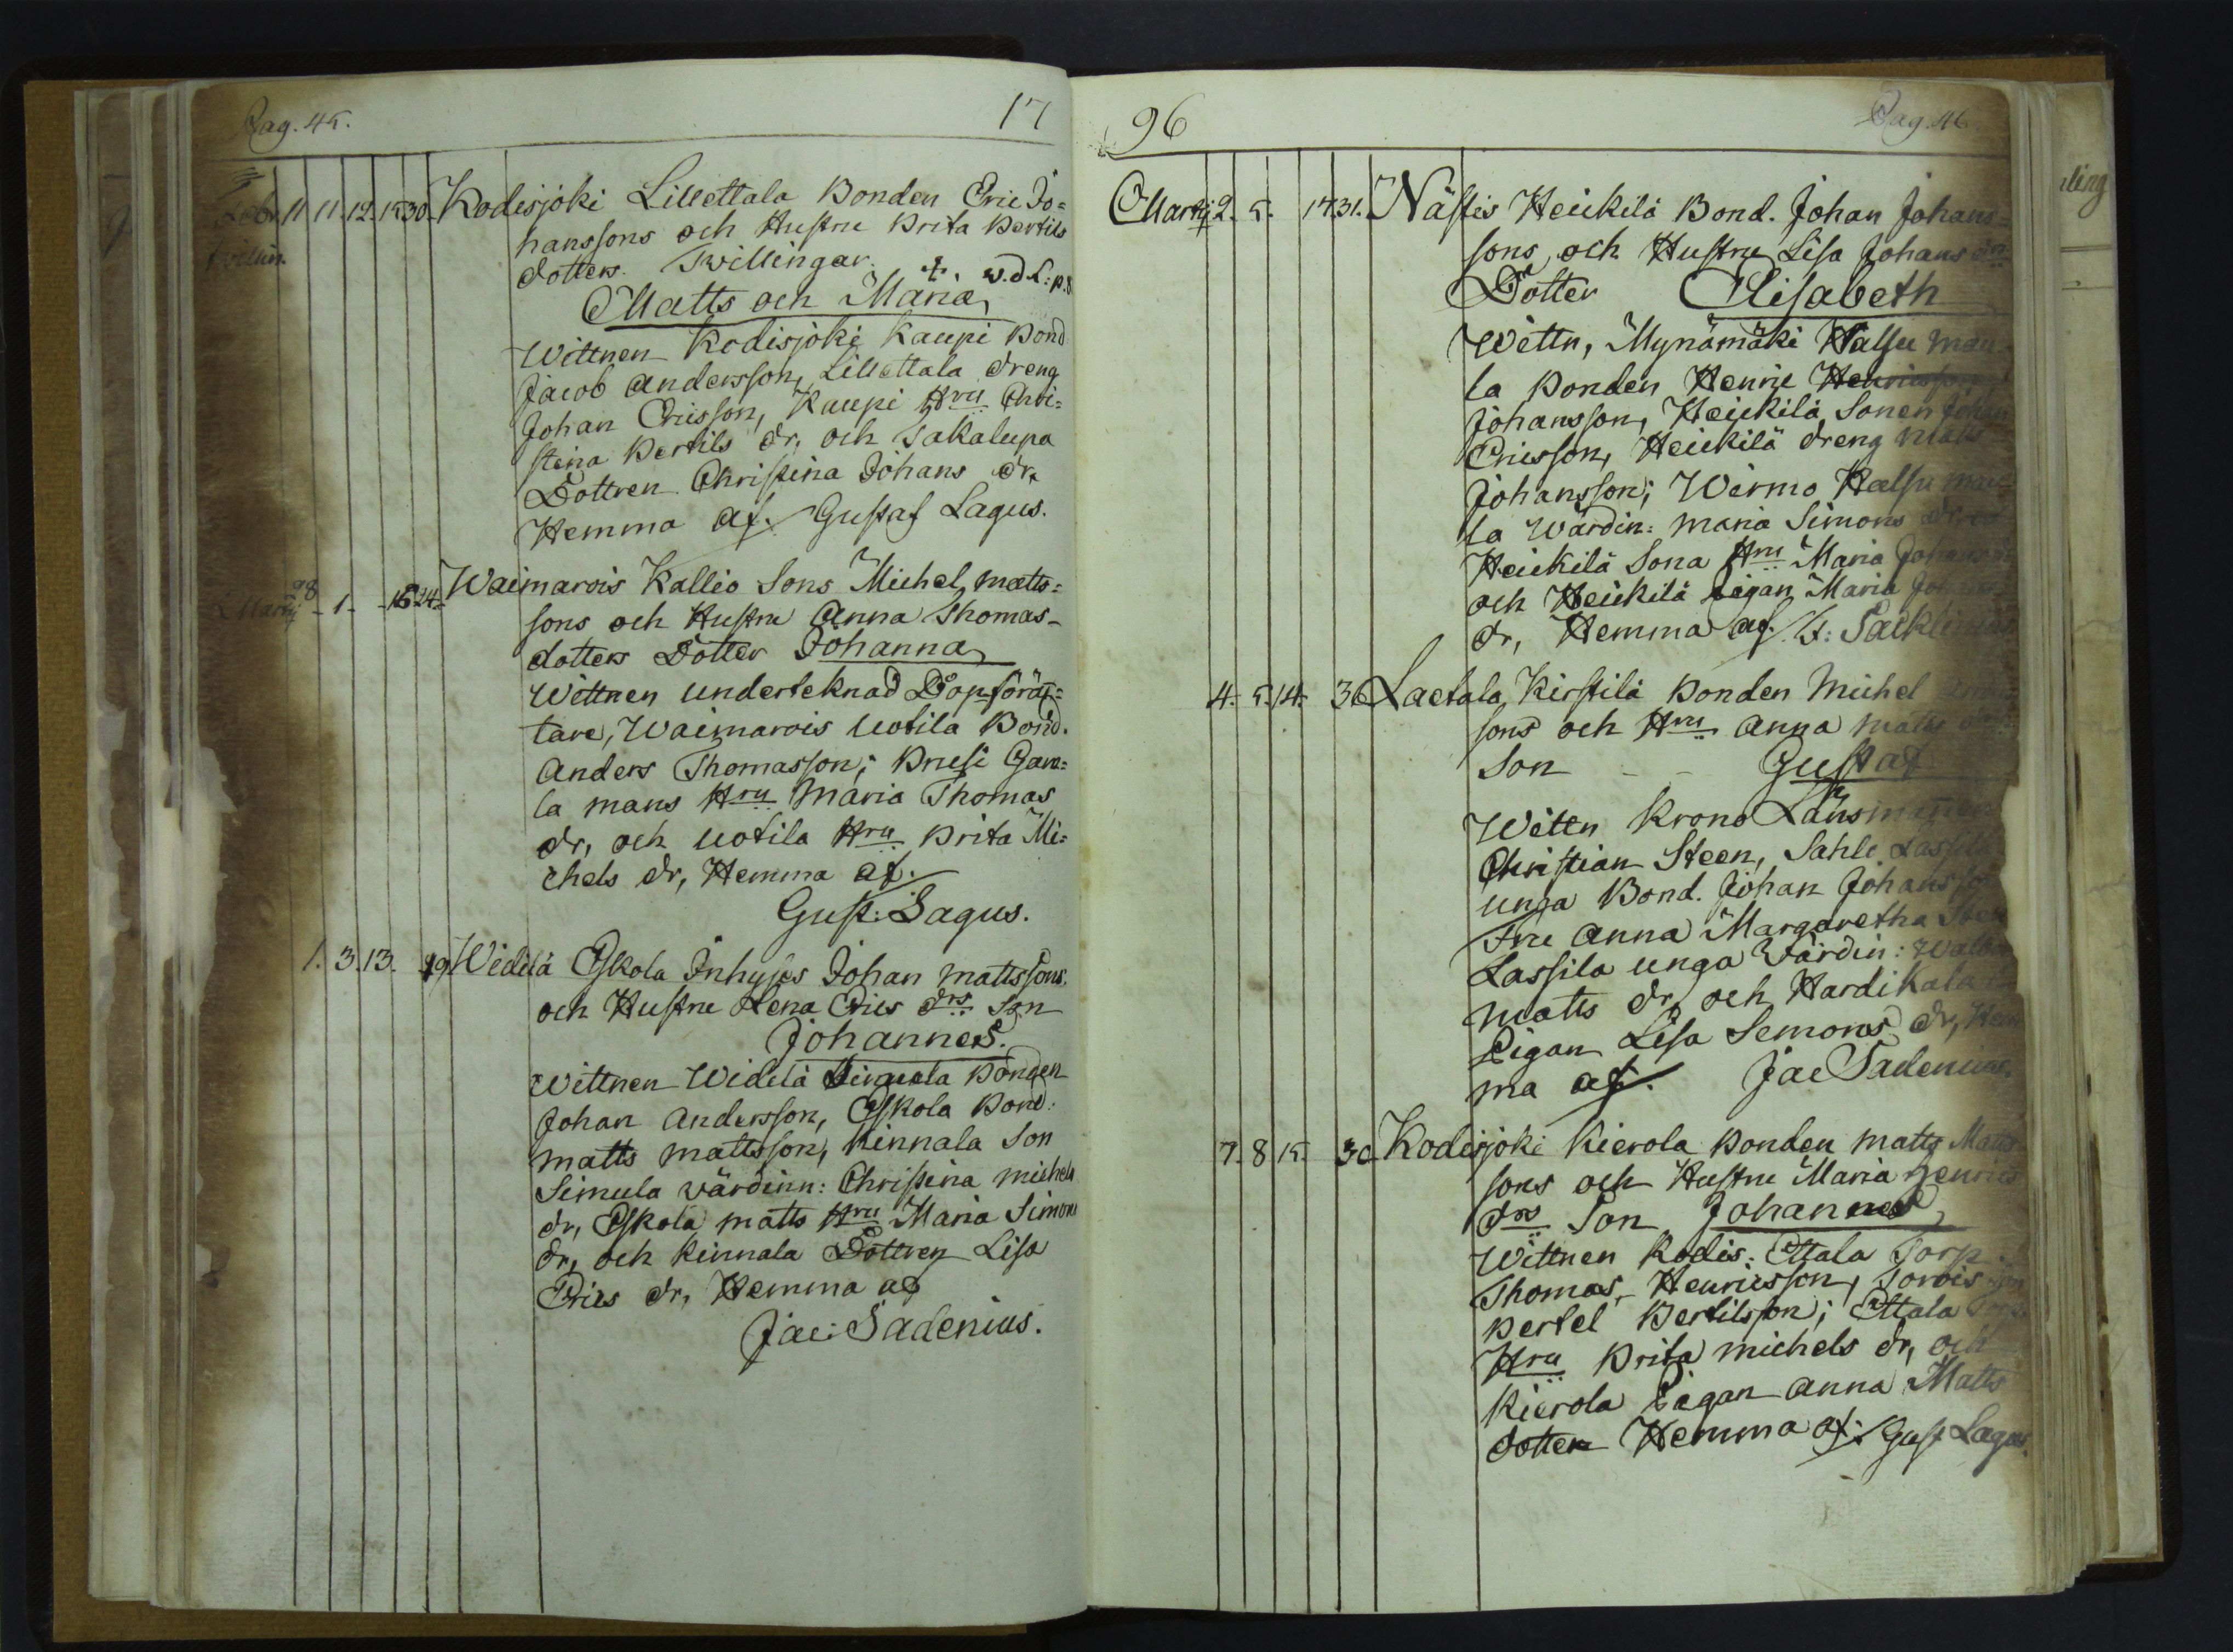 Pag. 45. 17
Febr. 11 11. 12. 15 30. Kodisjoki Lillettala Bonden Eric Jo=
hanssons och Hustru Brita Bertils
dotters. Twillingar. †. w. d. L: p. 8
Matts och Maria
Wittnen Kodisjoki Kaupi Bond
Jacob Andersson, Lillettala dreng
Johan Ericsson, Kaupi Hru Chri=
stina Bertils dr, och Takalupa
Dottren Christina Johans dr,
Hemma af. Gustaf Lagus.
28
Martij - 1. - 16 24. Waimarois Kallio Sons Michel Matts=
sons och Hustru Anna Thomas-
dotters Dotter Johanna
Wittnen underteknad Dopförät=
tare, Waimarois Uotila Bond.
Anders Thomasson; Pruesi Gam=
la mans Hru Maria Thomas
dr, och Uotila Hru Brita Mi=
chels dr, Hemma af.
Gust: Lagus.
1. 3. 13. 29 Widilä Eskola Inhyses Johan Mattssons.
och Hustru Lena Erics drs Son
Johannes.
Wittnen Widilä Bonden
Johan Andersson, Eskola Bond:
Matts Mattsson, Kinnala Son
Simula värdinn: Christina Michels
dr, Eskola Matts Hru Maria Simons
dr, och Kinnala Dottren Lisa
Erics dr, Hemma af
Jac: Sadenius.
96 Pag. 46
Martij 2. 5. 17 31. Nästis Heickilä Bond. Johan Johans=
sons, och Hustru Lisa Johans drs
Dotter Elisabeth
Wittn, Mynämäki Kalsu
la Bonden Henric Henricsson
Johansson, Heickilä Sonen Johan
Ericsson, Heickilä dreng Matts
Johansson; Wirmo Kalsu
la Wärdin: Maria Simons dr
Heickilä Sona Hru Maria Johans
och Heickilä Pigan Maria
dr, Hemma af.
4. 5. 14. 36 Laetala, Kirstilä Bonden Michel
sons och Hru Anna Matts
Son - - Gustaf
Wittn Krono Länsmannen
Christian Steen, Sahle Lassila
unga Bond. Johan Johansson
Fru Anna Margaretha Steen
Lassila unga värdin:
Matts dr, och Hardikala
Pigan Lisa Semons dr, Hem
ma af. Jac Sadenius.
7. 8. 15. 30 Kodisjoki Kierola Bonden Matts Matts
sons och Hustru Maria Henrics
drs Son Johannes
Wittnen Kodis: Ettala Torp
Thomas Henricsson, Torois
Bertel Bertilsson; Ettala Torp
Hru Brita Michels dr, och
Kierola Pigan Anna Matts
dotter Hemma af: Gust Lagus.
ling